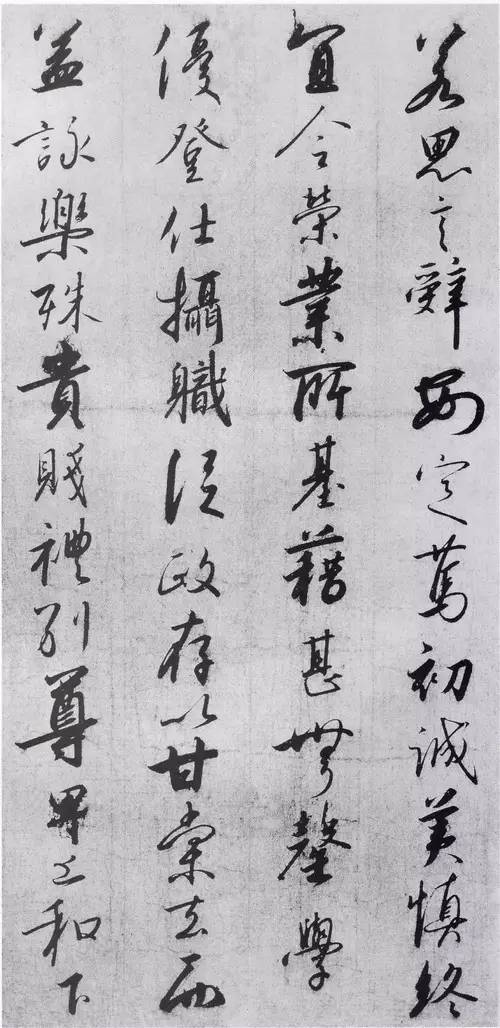 若思言辭安定篤初誠美慎終
宜令榮業所基藉甚無罄學
優登仕攝職從政存以甘棠去而
益詠樂殊貴賤禮別尊卑上和下